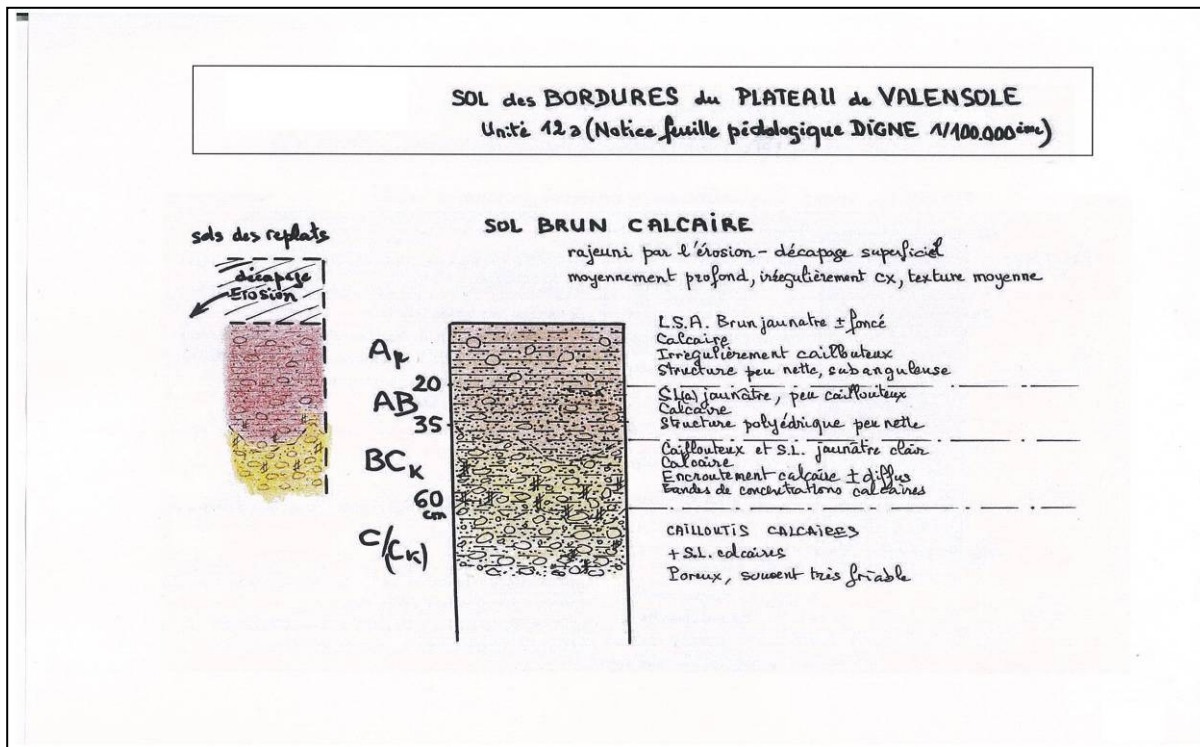 SOL des BORDURES du PLATEAU de VALENSOLE
Unité 12a (Notice feuille pédologique DIGNE 1/100.000ème)
SOL BRUN CALCAIRE
rajeuni par l'érosion - décapage superficiel
moyennement profond, irrégulièrement cx, texture moyenne
sols des replats
décapage
Erosion
Ap
20
AB
35
BCk
60
cm
C/(Ck)
L.S.A. Brun jaunatre ± foncé
Calcaire
Irrégulièrement caillouteux
Structure peu nette, subanguleuse
SL(a) jaunâtre, peu caillouteux
Calcaire
Structure polyédrique peu nette
Caillouteux et S.L. jaunâtre clair
Calcaire
Encroutement calcaire ± diffus
Bandes de concentrations calcaires
CAILLOUTIS CALCAIRES
+ S.L. calcaires
Poreux, souvent très friable